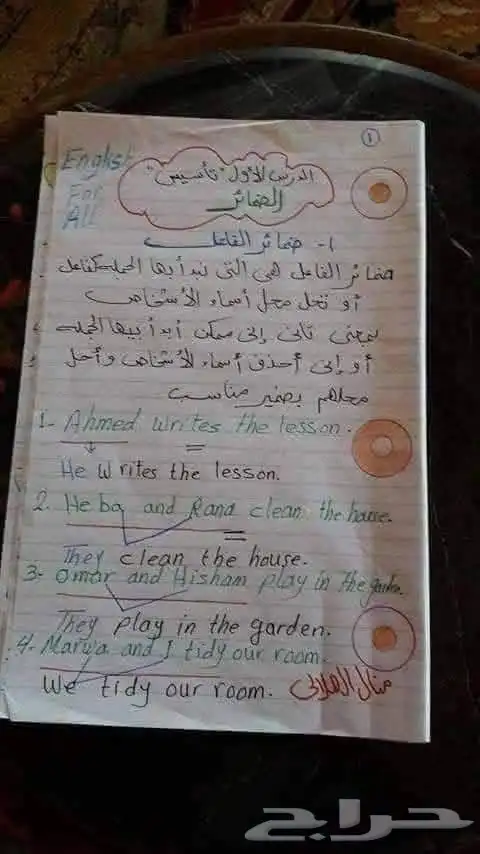 ①
English
For
All
الدرس الأول "تأسيس"
الضمائر
١- ضمائر الفاعل
ضمائر الفاعل هى التى نبدأ بها الجملة كفاعل
أو تحل محل أسماء الأشخاص
بمعنى تانى إنى ممكن أبدأ بيها الجملة
أو إنى أحذف أسماء الأشخاص وأحل
محلهم بضمير مناسب
1- Ahmed writes the lesson.
He writes the lesson.
2. Heba and Rana clean the house.
They clean the house.
3- Omar and Hisham play in the garden.
They play in the garden.
4- Marwa and I tidy our room.
We tidy our room. منال الهلالى
حراج